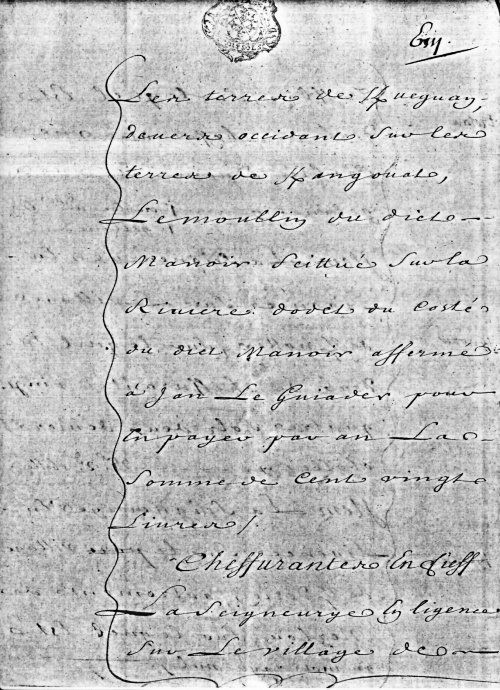 Les terres de Kueguen,
deuers occidant sur les
terres de Kangouat,
Le moullin du dict
Manoir scittué sur la
Riuiere dodet du costé
du dict Manoir affermé
à Jan Le Guiader pour
En payer par an La
Somme de Cent vingt
Liures /
Chiffurantes En fieff
La Seigneurye Ey ligence
Sur Le village de